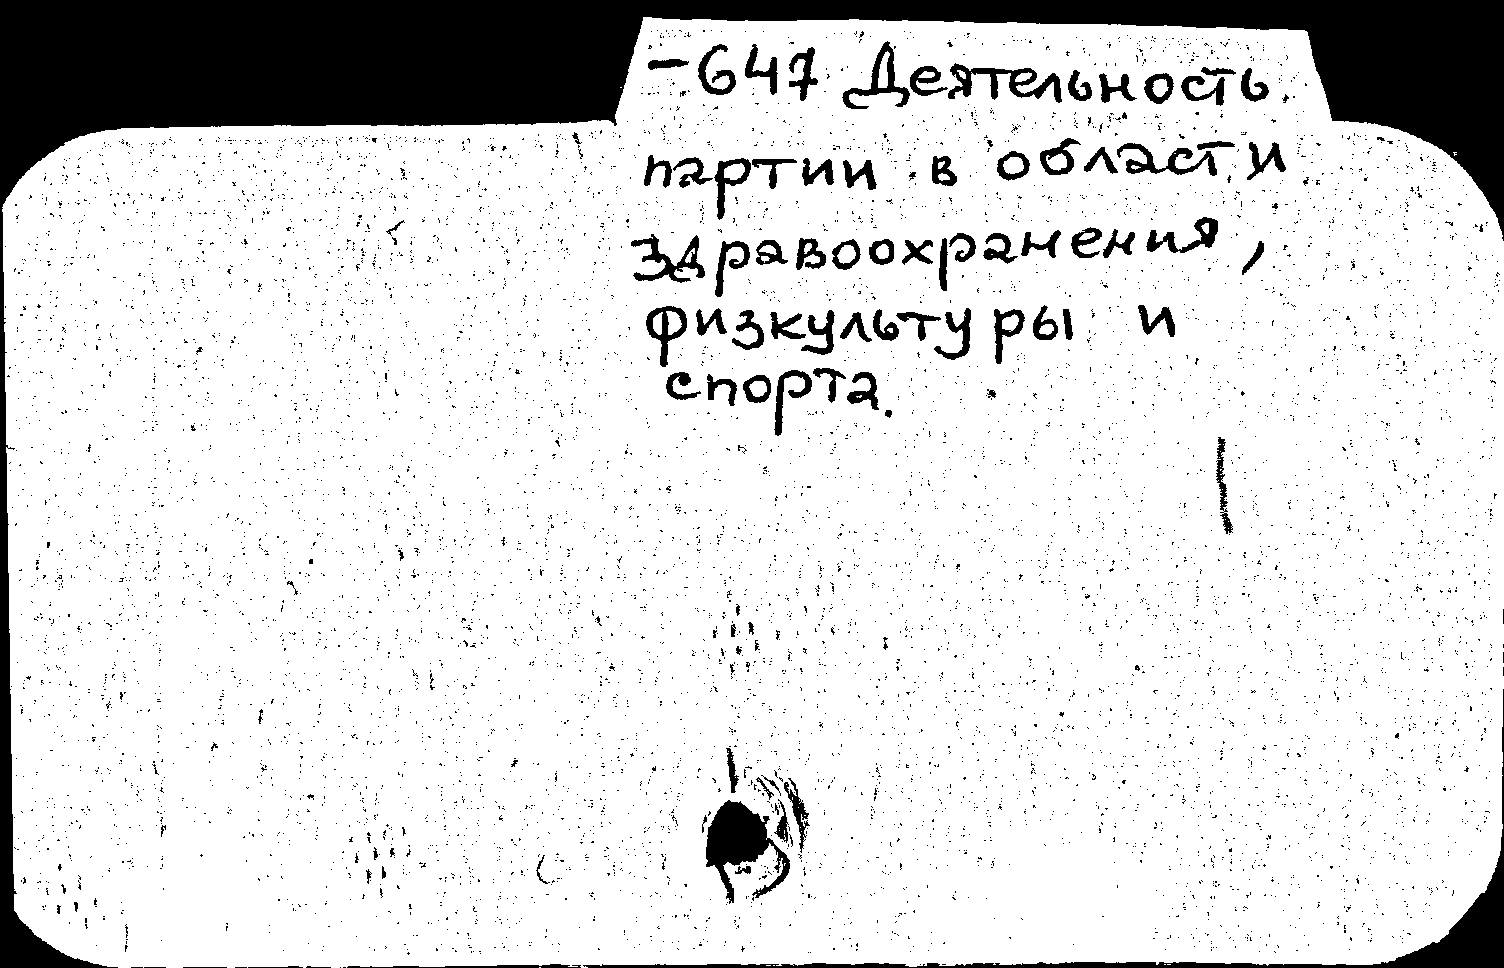 -647 Деятельность
партии в области
здравоохранения,
физкультуры и
спорта.